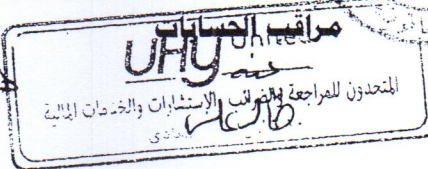 مراقب الحسابات
UHY United
المتحدون للمراجعة والضرائب الإستشارات والخدمات المالية